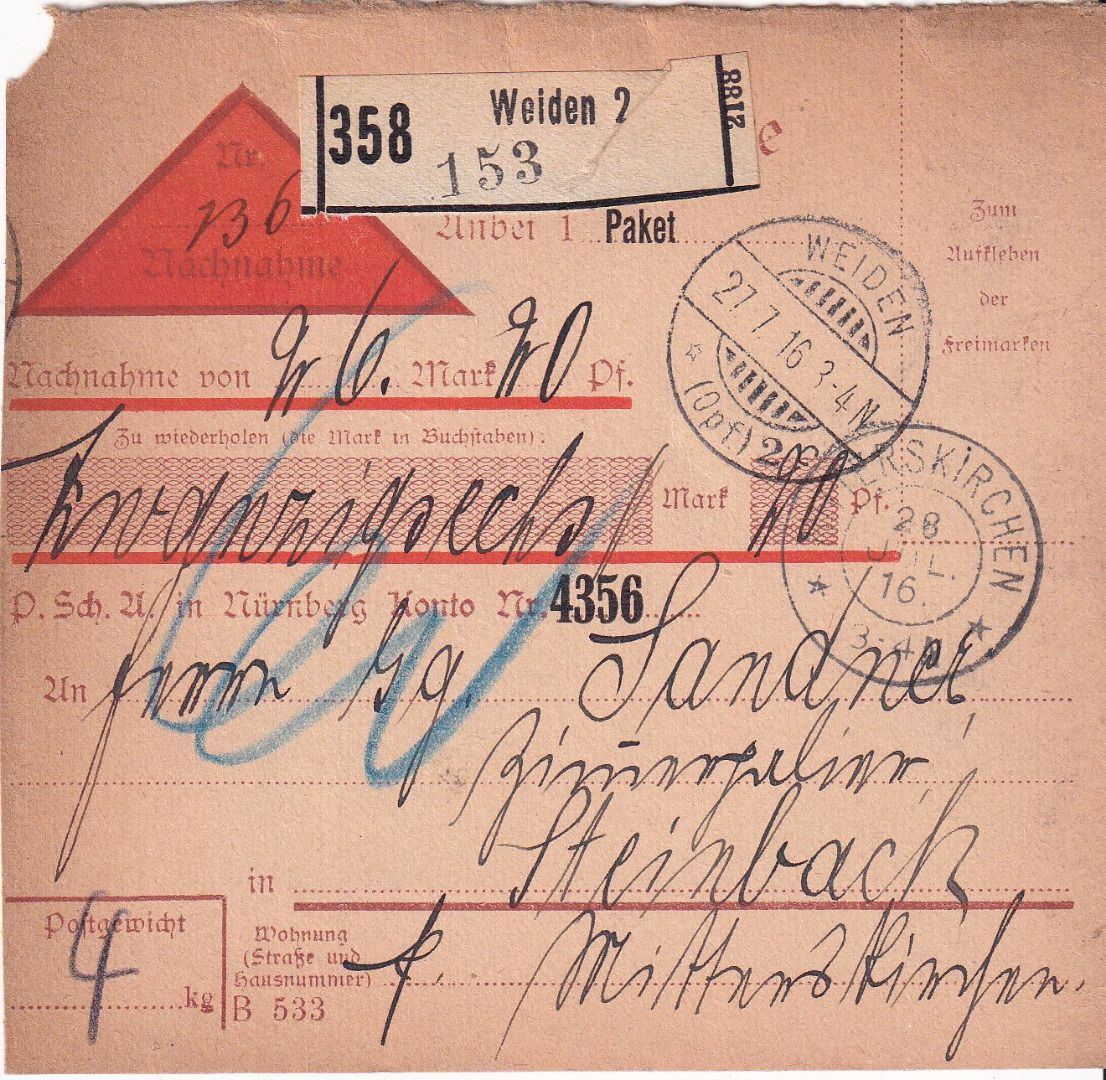 358 Weiden 2 2188
153
Nr.
136
Nachnahme
Anbei 1 Paket
Zum
Aufkleben
der
Freimarken
WEIDEN
27.7.16 3-4 N.
(Opf) 2
Nachnahme von 26. Mark 20 Pf.
Zu wiederholen (die Mark in Buchstaben):
Zwanzigsechs Mark 20 Pf.
ERSKIRCHEN
28.
JUL.
16.
3-4
P. Sch. A. in Nürnberg Konto Nr. 4356
An Herrn Gg. Sandner
Zimmerpalier
in Steinbach
Postgewicht
4 kg
Wohnung
(Straße und
Hausnummer)
P. Mitterskirchen.
B 533